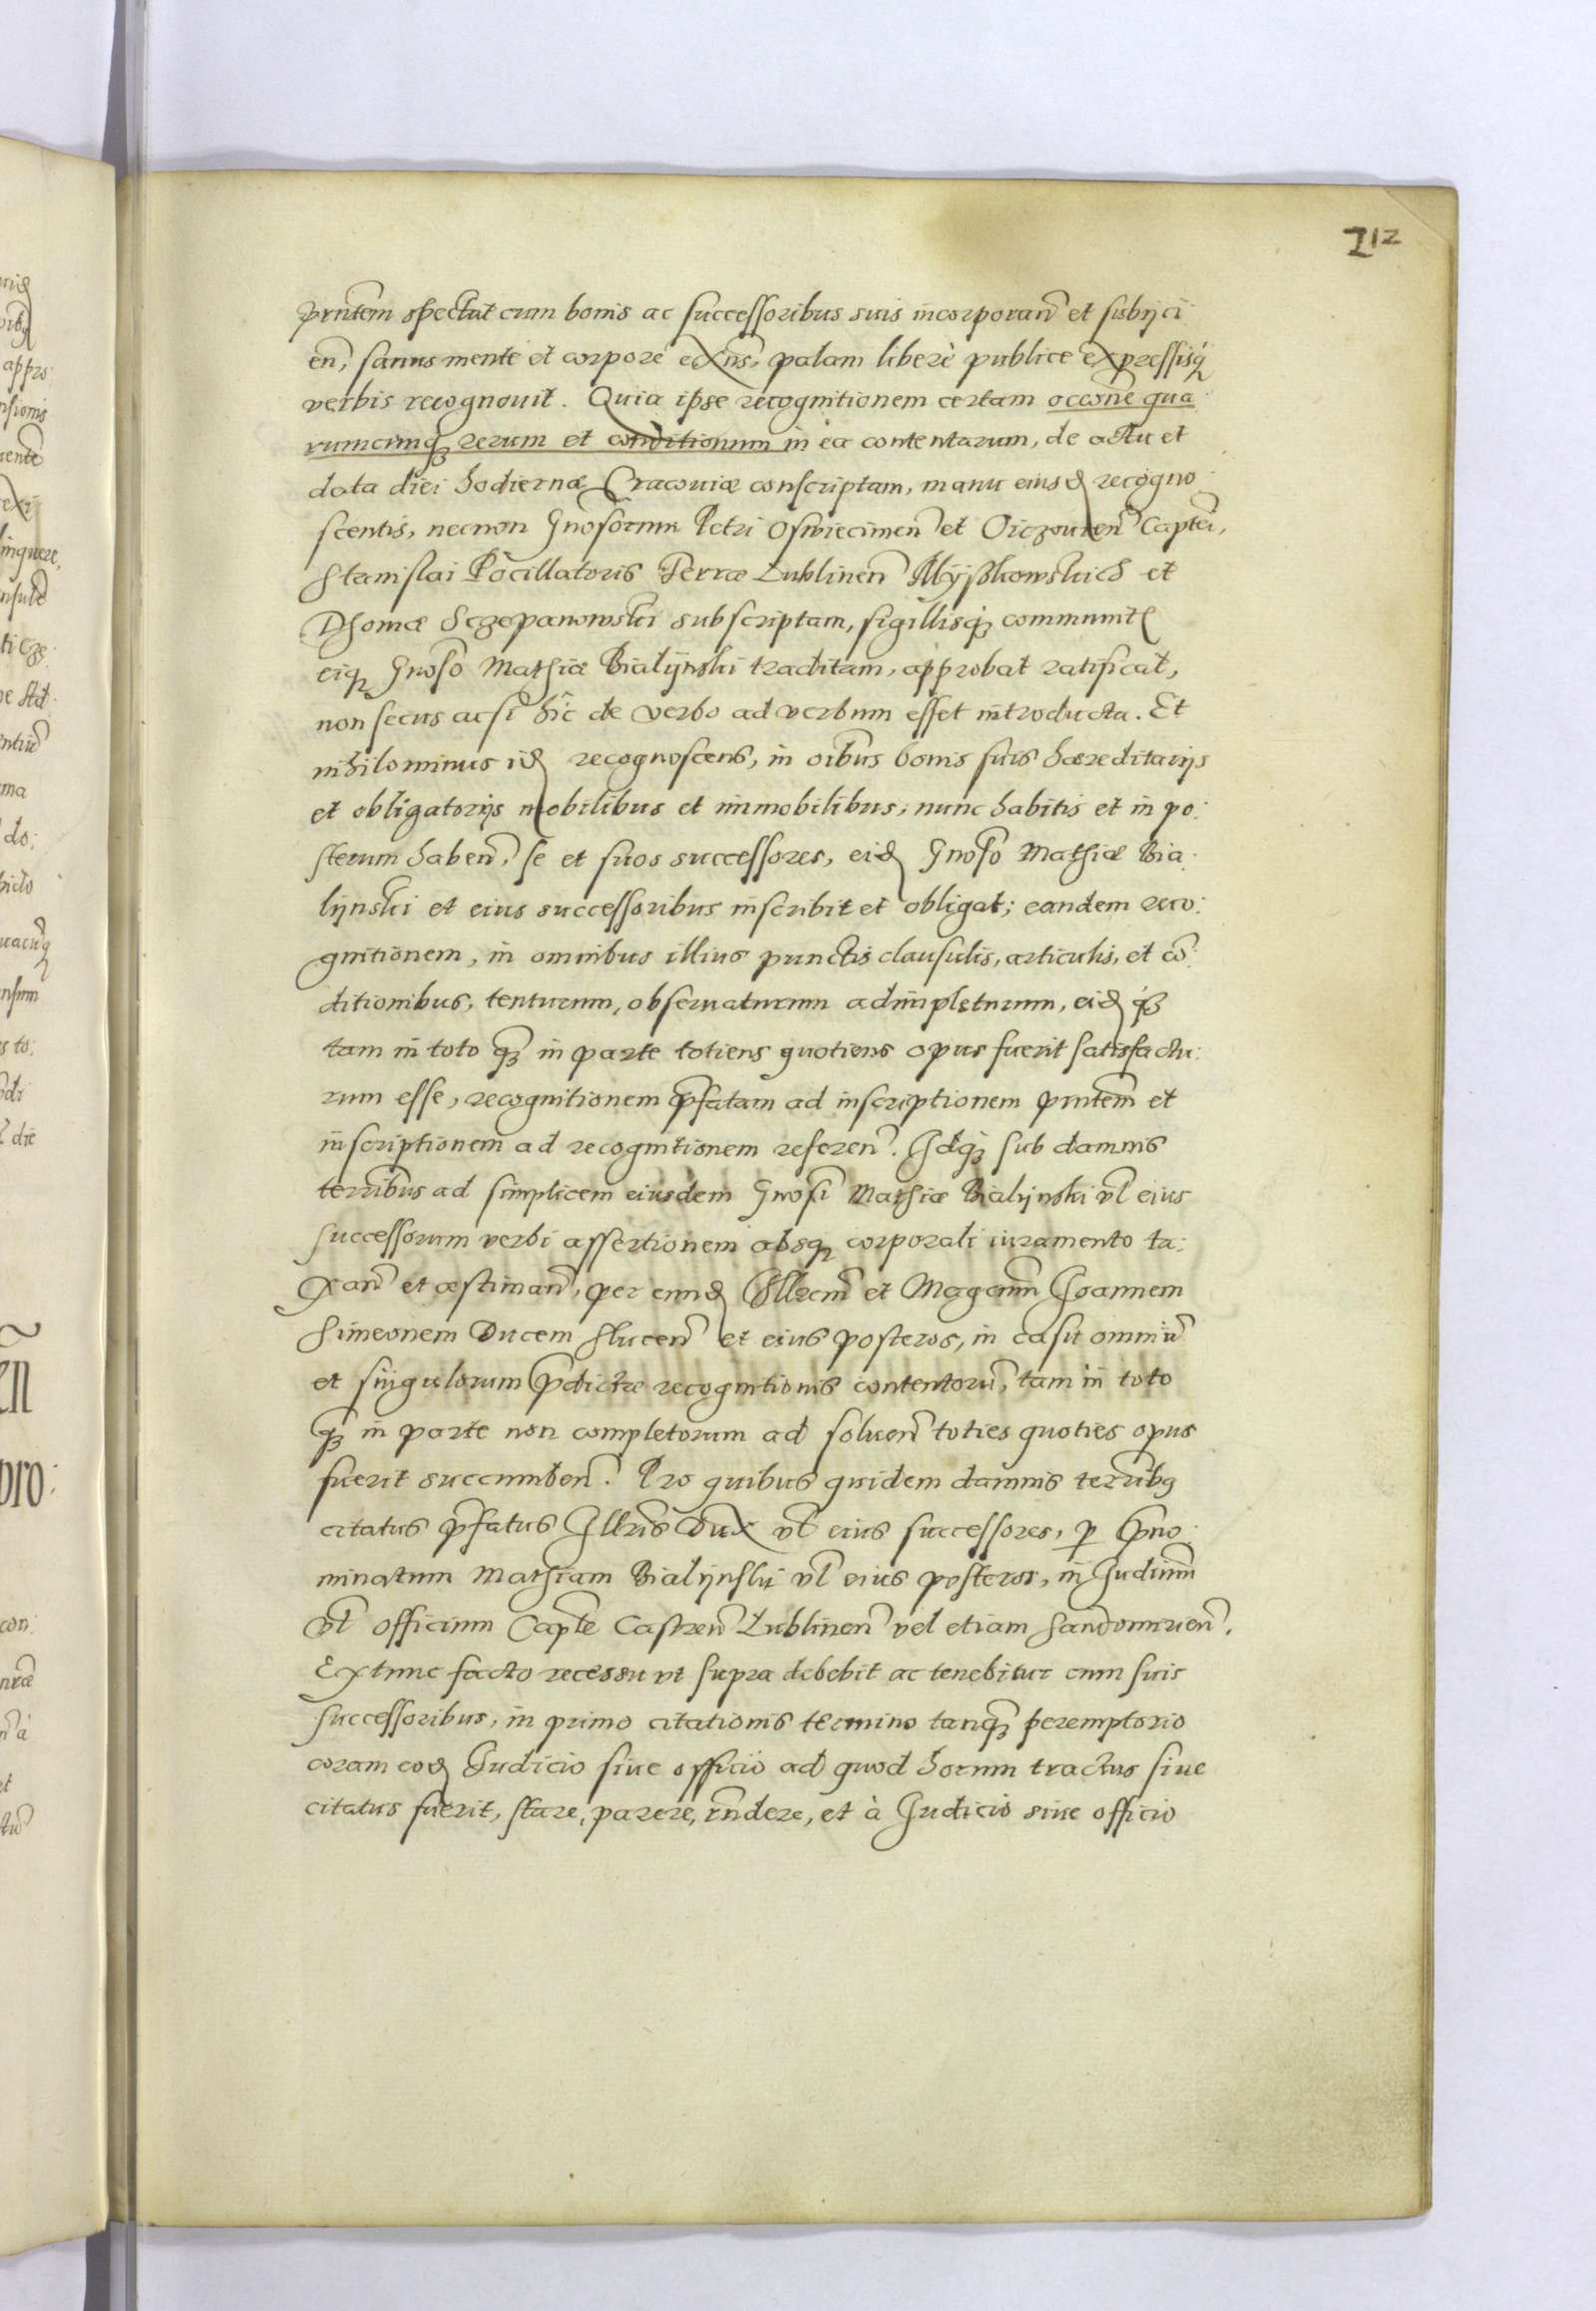 212
prntem spectat cum bonis ac successoribus suis incorporan̄ et subijci
en̄, sanus mente et corpore exn̄s, palam liberè publice expressisq́
verbis recognouit. Quia ipse recognitionem certam occōne qua
rumcunq́ȝ rerum et conditionum in ea contentarum, de actu et
data diei hodiernæ Cracouiæ conscriptam, manu eiusđ recogno
scentis, necnon Gnosorum Petri Oswiecimen̄ et Oiczouien̄ Captei,
Stanislai Pocillatoris Terræ Lublinen̄ Myszkowskich et
Thomæ Sczepanowski subscriptam, sigillisq́ȝ communit
eiq́ Gnoso Mathiæ Bialijnski traditam, approbat ratificat,
non secus ac si hîc de verbo ad verbum esset introducta. Et
nihilominus iđ recognoscens, in oībus bonis suis hæreditarijs
et obligatorijs mobilibus et immobilibus, nunc habitis et in po:
sterum haben̄, se et suos successores, eiđ Gnoso Mathiæ Bia:
lijnski et eius successoribus inscribit et obligat; eandem reco:
gnitionem, in omnibus illius punctis clausulis, articulis, et cō:
ditionibus, tenturum, obseruaturum adimpleturum, eiđ q́ȝ
tam in toto q̄ȝ in parte totiens quotiens opus fuerit satisfactu:
rum esse, recognitionem p̄fatam ad inscriptionem prntem et
inscriptionem ad recognitionem referen̄. Idq́ȝ sub damnis
terrībus ad simplicem eiusdem Gnosi Mathiæ Bialijnski vl̄ eius
successorum verbi assertionem absq́ corporali iuramento ta:
xan̄ et æstiman̄, per eunđ Illrem̄ et Magcum̄ Joannem
Simeonem Ducem Slucen̄ et eius posteros, in casu omniū
et singulorum p̄dictæ recognitionis contentorū, tam in toto
q̄ȝ in parte non completorum ad soluen̄ toties quoties opus
fuerit succumben̄. Pro quibus quidem damnis terrībꝰ
citatus p̄fatus Illris̄ Dux vl̄ eius successores, p̲ p̄no
minatum Mathiam Bialijnski vl̄ eius posteros, in Judium̄
vl̄ officium Capte Castren̄ Lublinen̄ vel etiam Sandomirien̄.
Extunc facto recessu vt supra debebit ac tenebitur cum suis
successoribus, in primo citationis termino tanq̄ȝ peremptorio
coram eođ Judicio siue officio ad quod horum tractus siue
citatus fuerit, stare, parere, rn̄dere, et à Judicio siue officio